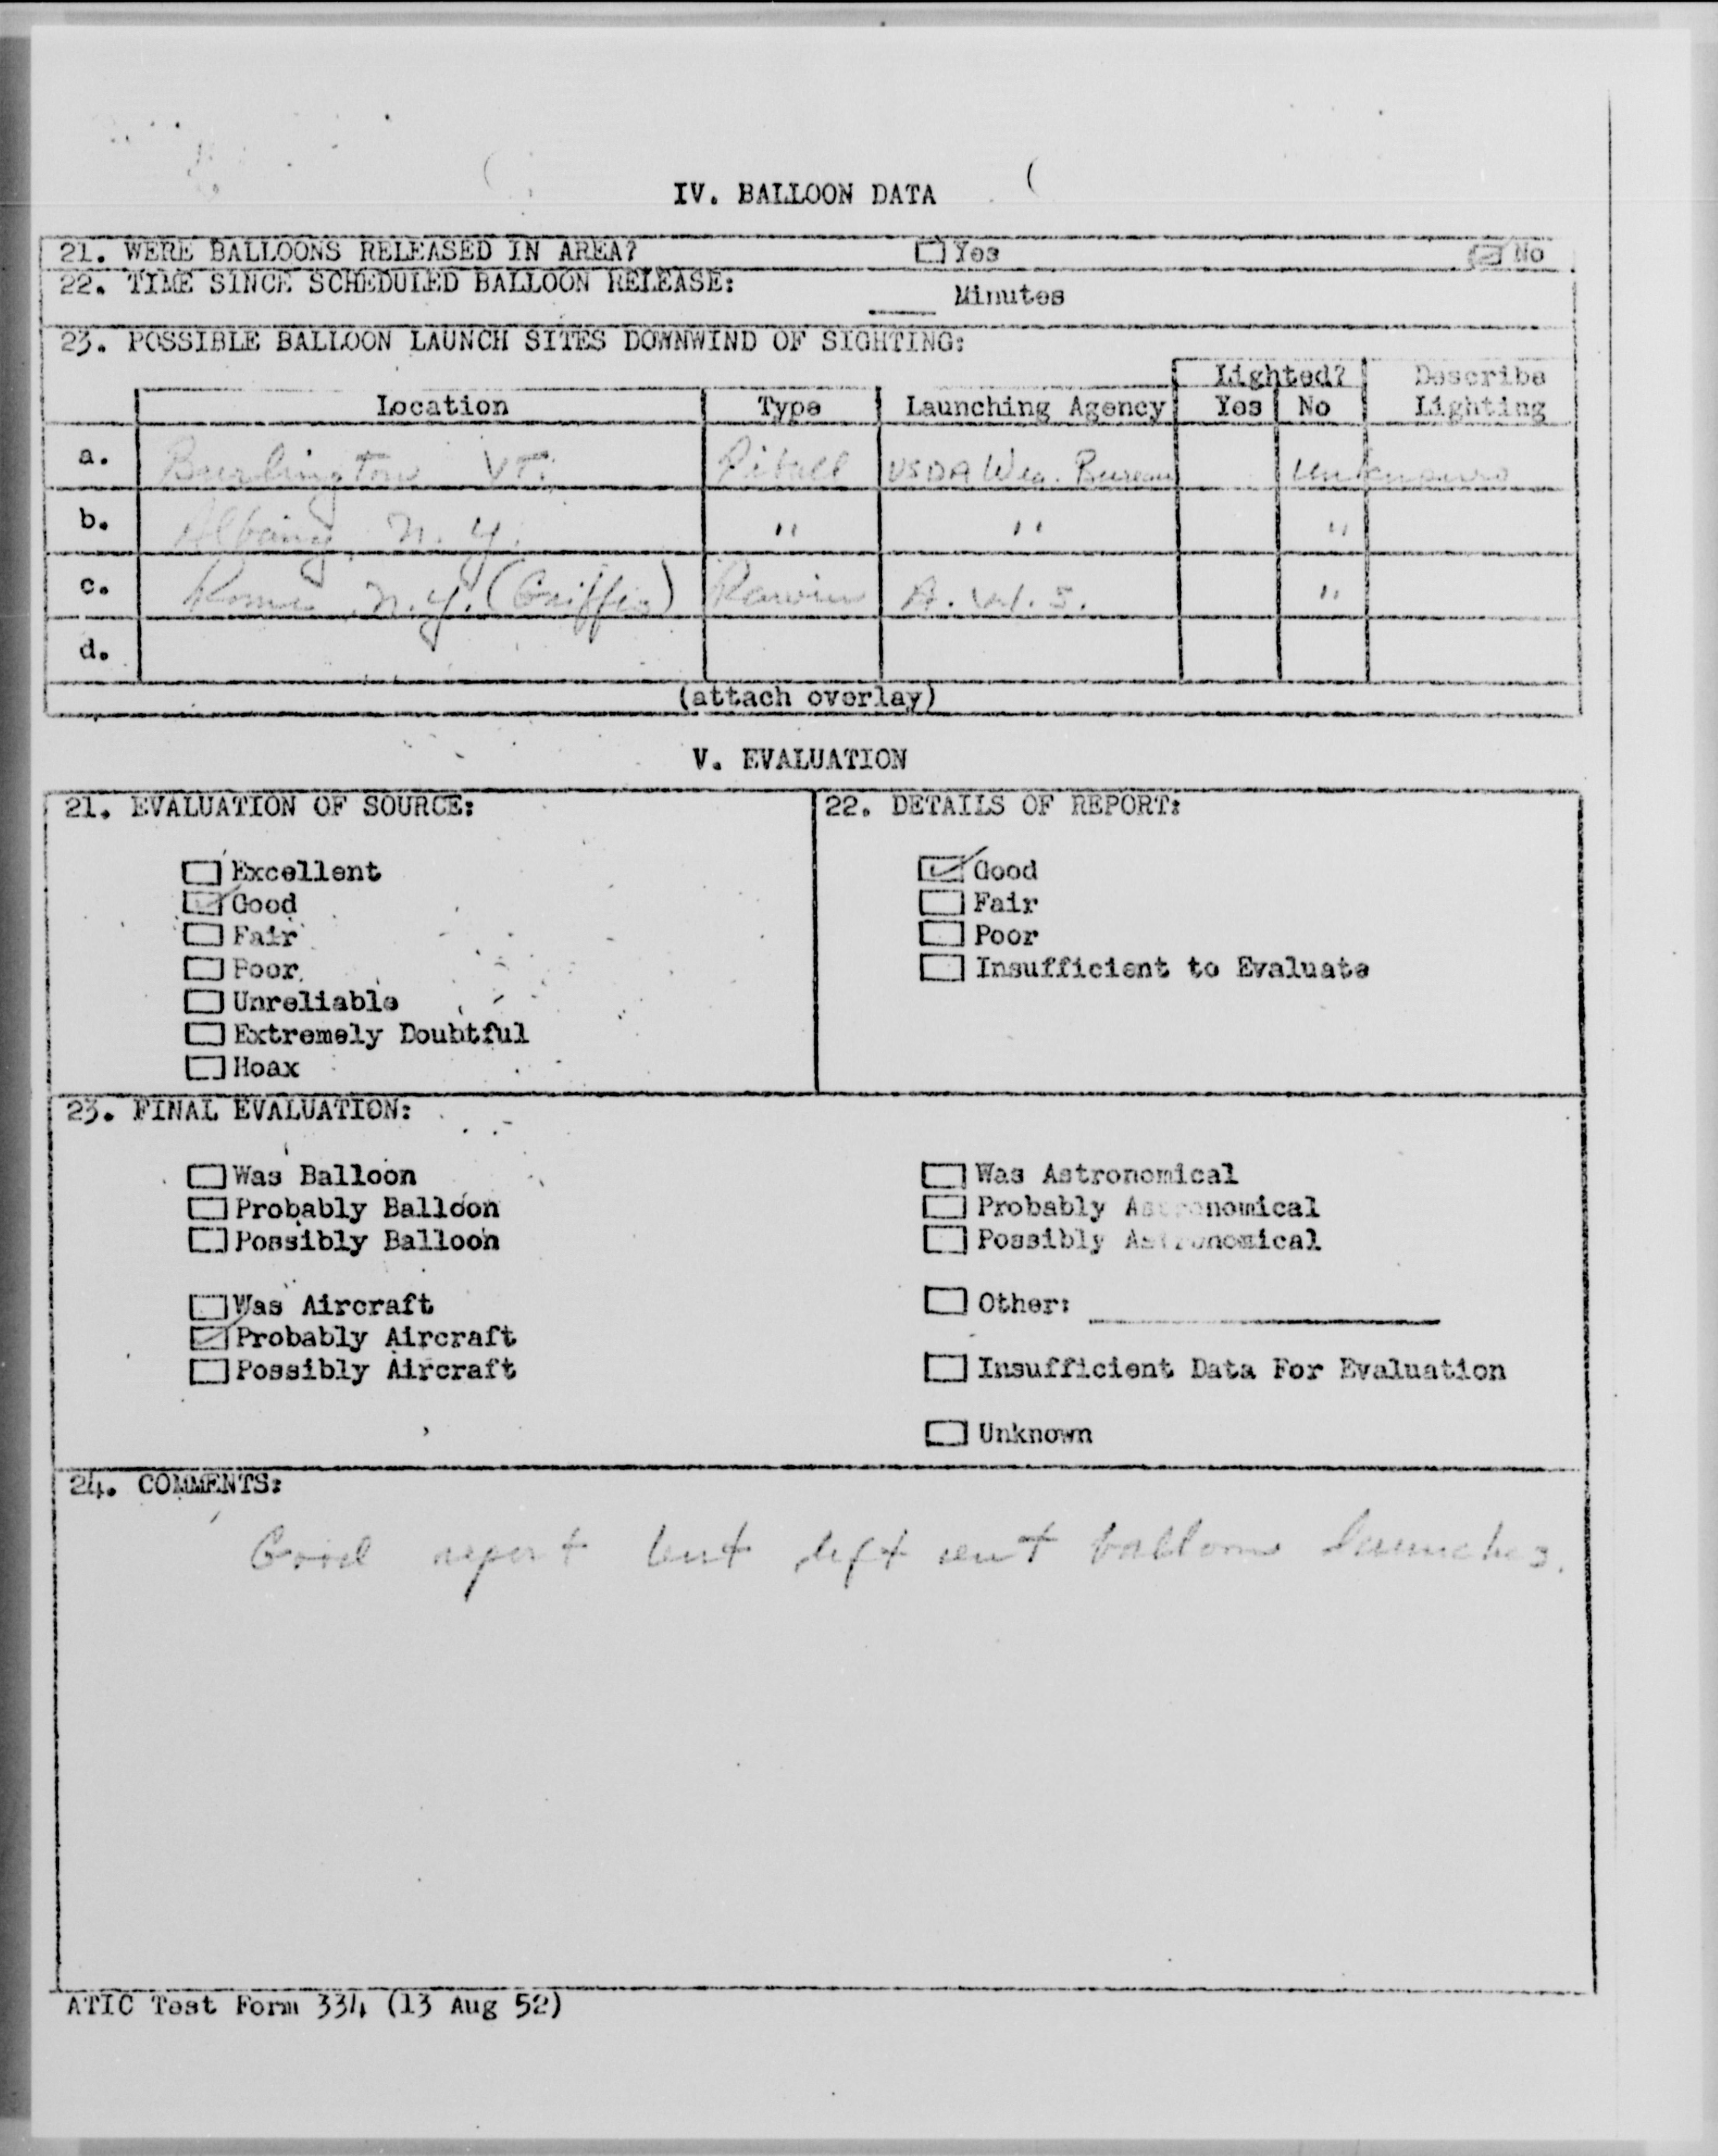 IV. BALLOON DATA
21. WERE BALLOONS RELEASED IN AREA? Yes No
22. TIME SINCE SCHEDULED BALLOON RELEASE: Minutes
23. POSSIBLE BALLOON LAUNCH SITES DOWNWIND OF SIGHTING:
Lighted? Describe
Location Type Launching Agency Yes No Lighting
a. Burlington VT. Piball USDA Wea. Bureau Unknown
b. Albany, N.Y. " " "
c. Rome N.Y. (Griffis) Rawin A.W.S. "
d.
(attach overlay)
V. EVALUATION
21. EVALUATION OF SOURCE:
Excellent
Good
Fair
Poor
Unreliable
Extremely Doubtful
Hoax
22. DETAILS OF REPORT:
Good
Fair
Poor
Insufficient to Evaluate
23. FINAL EVALUATION:
Was Balloon
Probably Balloon
Possibly Balloon
Was Aircraft
Probably Aircraft
Possibly Aircraft
Was Astronomical
Probably Astronomical
Possibly Astronomical
Other:
Insufficient Data For Evaluation
Unknown
24. COMMENTS:
Good report but left out balloon launches.
ATIC Test Form 334 (13 Aug 52)